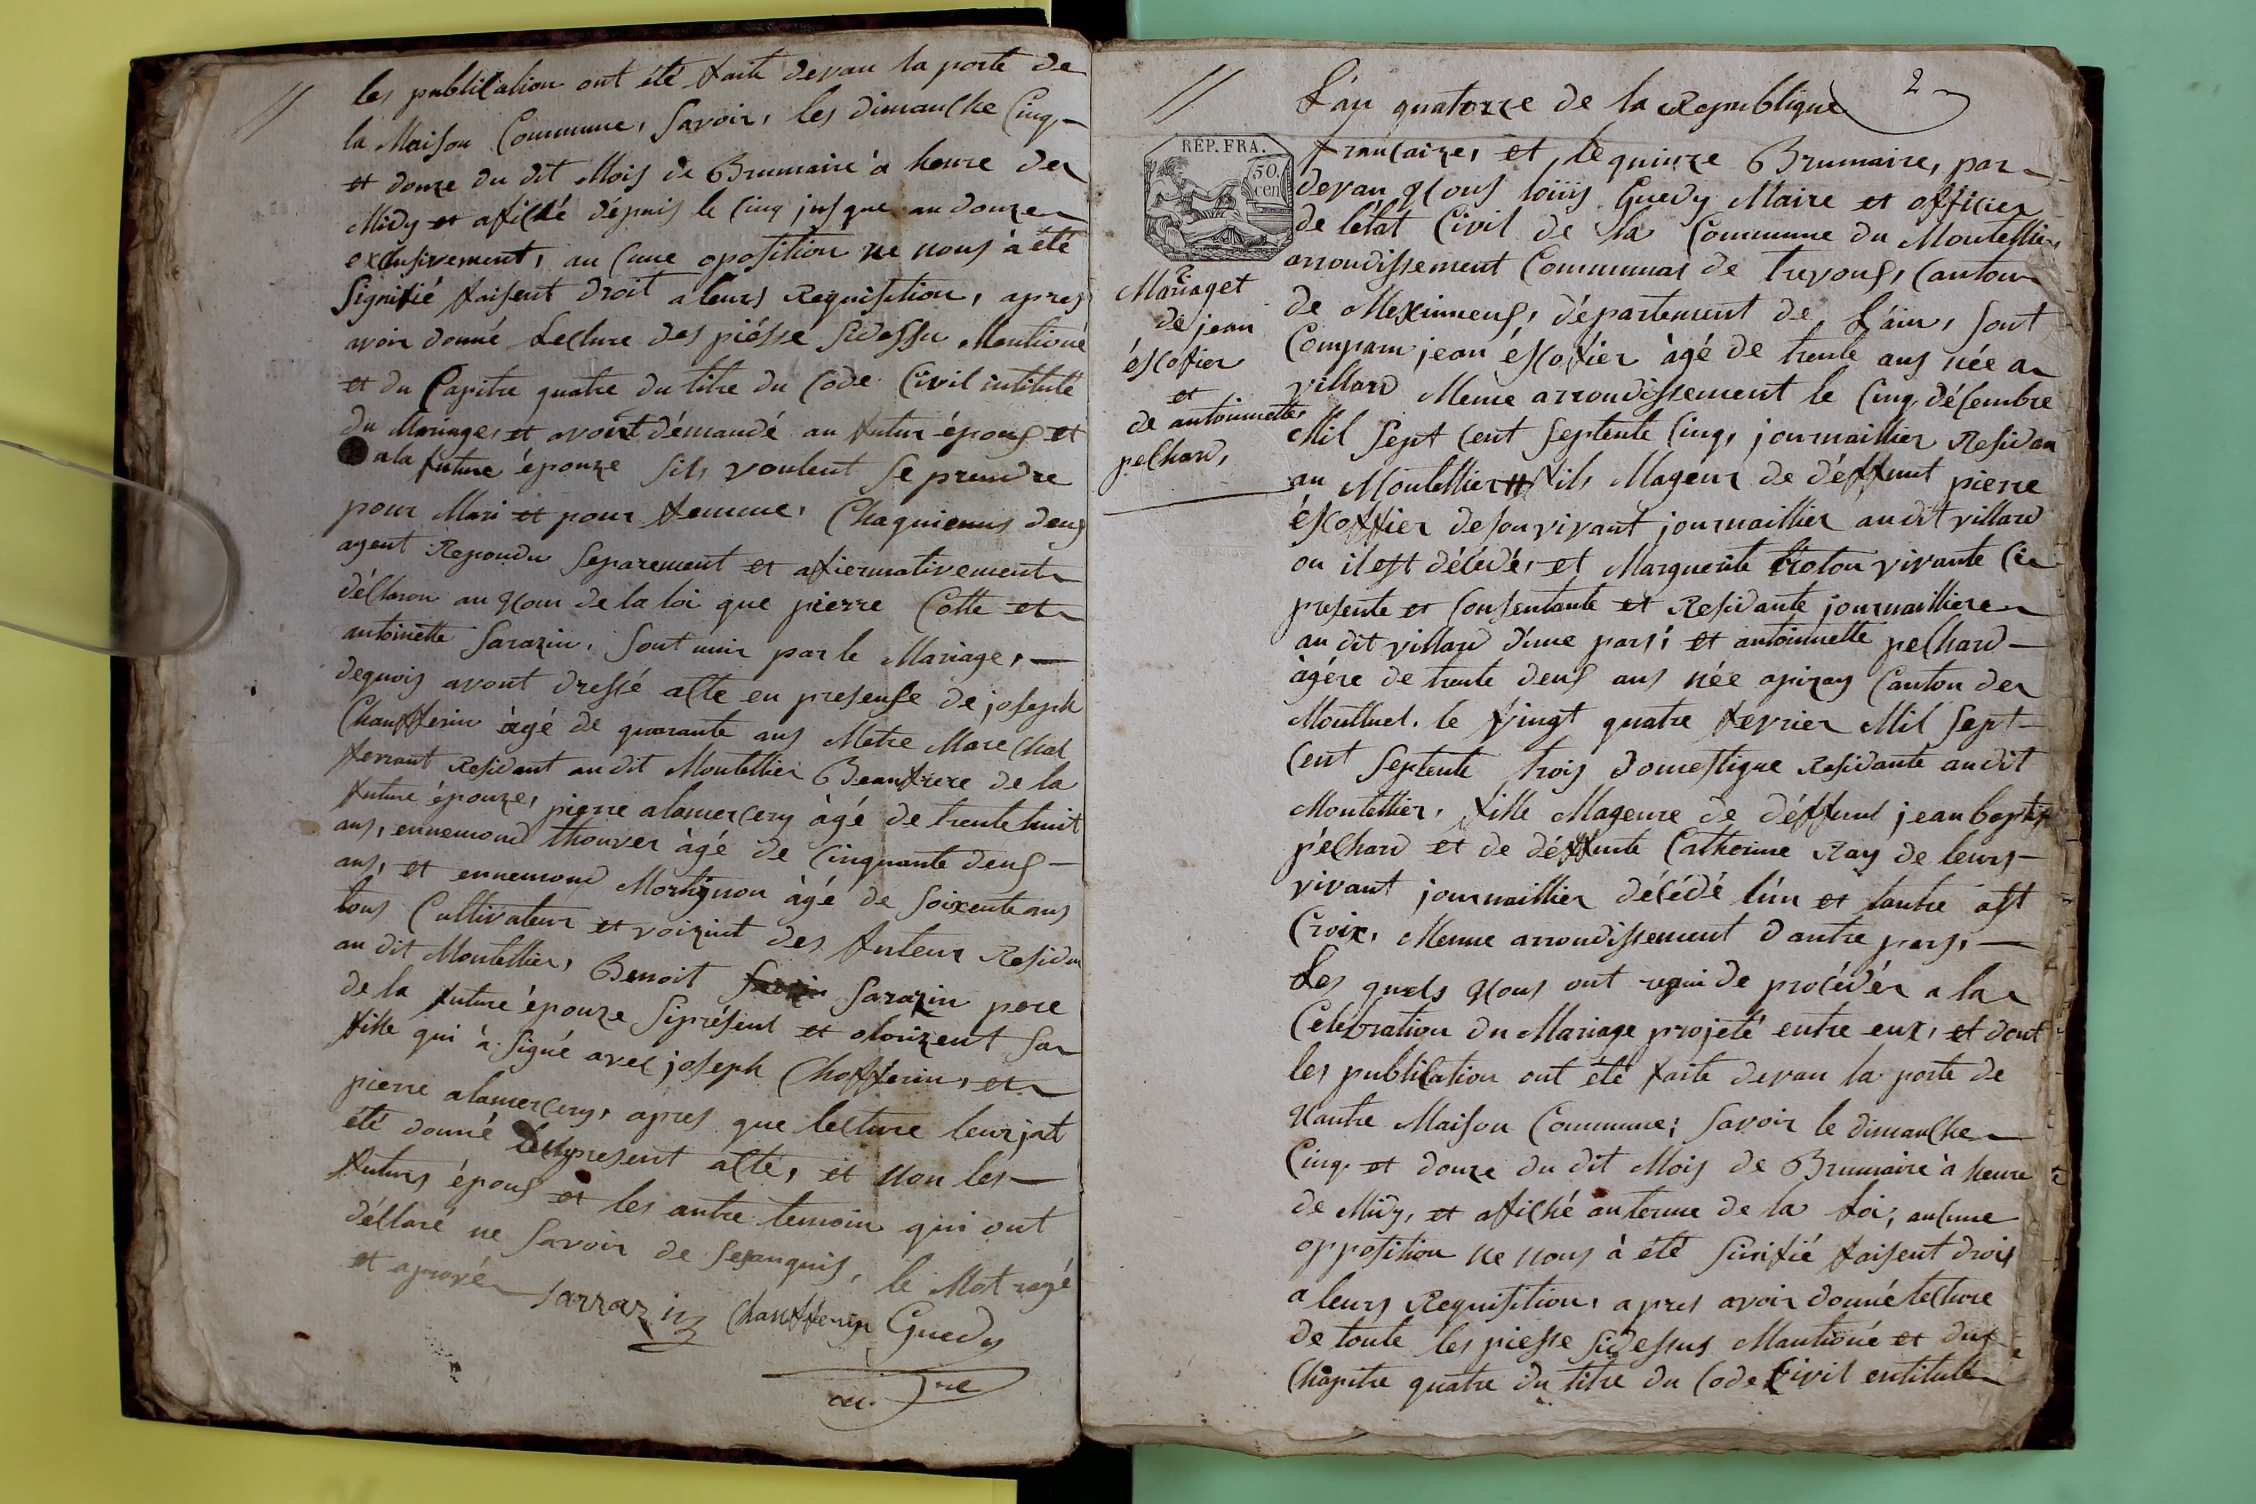 les publication ont été faite devan la porte de
la Maison Commune, Savoir, les dimanche Cinq
et douze du dit Mois de Brumaire à heure de
Midy et afiché dépuis le Cinq jusque au douze
exclusivement, au Cune oposition ne nous à été
Signifié faisent droit a leurs Requisition, apres
avoir donné Lecture des piésse sidessu Mentioné
et du Capitre quatre du titre du Code Civil intitulé
du Mariage, et avoirt démandé au futur époux et
ala future épouze sils voulent se prendre
pour Mari et pour femme, Chaquienus deux
ayent Repondu Separement et afiermativement
déclaron au Nom de la loi que pierre Cotte et
antoinette Sarazin, sont unir par le Mariage,
dequois avont dressé acte en presense de joseph
Chaufferin àgé de quarante ans Metre Marechal
ferrant Residant au dit Montellier Beaufrere de la
future épouze, pierre alamercery àgé de trente huit
ans, ennemond thouver àgé de Cinquante deus
ans, et ennemond Mortignon àgé de soixente ans
tous Cultivateur et voizint des futeur Residan
au dit Montellier, Benoit Sarazin pere
de la future épouze siprésent et otorizent sa
fille qui à Signé avec joseph Chofferin, et
pierre alamercery, apres que lecture leur jat
été donné du present acte, et Non les
futurs époux et les autre temoin qui ont
déclaré ne Savoir de sesanquis, le Mot rayé
et aprové
Sarrazin Chaufferin Guedy
Mre
2
L'an quatorze de la Republique
REP. FRA.
50.
cen
francaize, et le quinze Brumaire, par
devan Nous loüis Guedy Maire et officier
de l'état Civil de la Commune du Montellier,
arrondissement Communal de trevous, Canton
de Meximieus, département de L'ain, sont
Mariaget
de jean
éscofier
et
de antoinnette
pelhard,
Comparu jean éscofier àgé de trente ans née a
villard Meme arrondissement le Cinq décembre
Mil Sept Cent Septente Cinq, journaillier Residan
au Montellier fils Mageur de déffunt pierre
éscoffier desonvivant journaillier au dit villard
ou il est décédé, et Marguerite troton vivante Ci
presente et Consentante et Residante journailliere
au dit villard d'une pars; et antoinnette pelhard
àgére de trente deus ans née apizay Canton de
Montluel. le vingt quatre fevrier Mil Sept
Cent Septente trois domestique Residante au dit
Montellier, fille Mageure de déffunt jean baptis
pélhard et de déffunte Catherine Ray de leurs
vivant journaillier décédé l'un et lautre a St
Croix, Meme arrondissement d'autre pars,
Les quels Nous ont requi de procédér a la
Celebration du Mariage projeté entre eux, et dont
les publication ont été faite devan la porte de
Nautre Maison Commune; Savoir le dimanche
Cinq et douze du dit Mois de Brumaire à heure
de Midy, et afiché auterme de la Loi; aucune
opposition ne nous à été Sinifié faisent drois
a leurs Requisition, apres avoir donné lecture
de toute les piesse sidessus Mantioné et du
Chapitre quatre du titre du Code Civil entitule